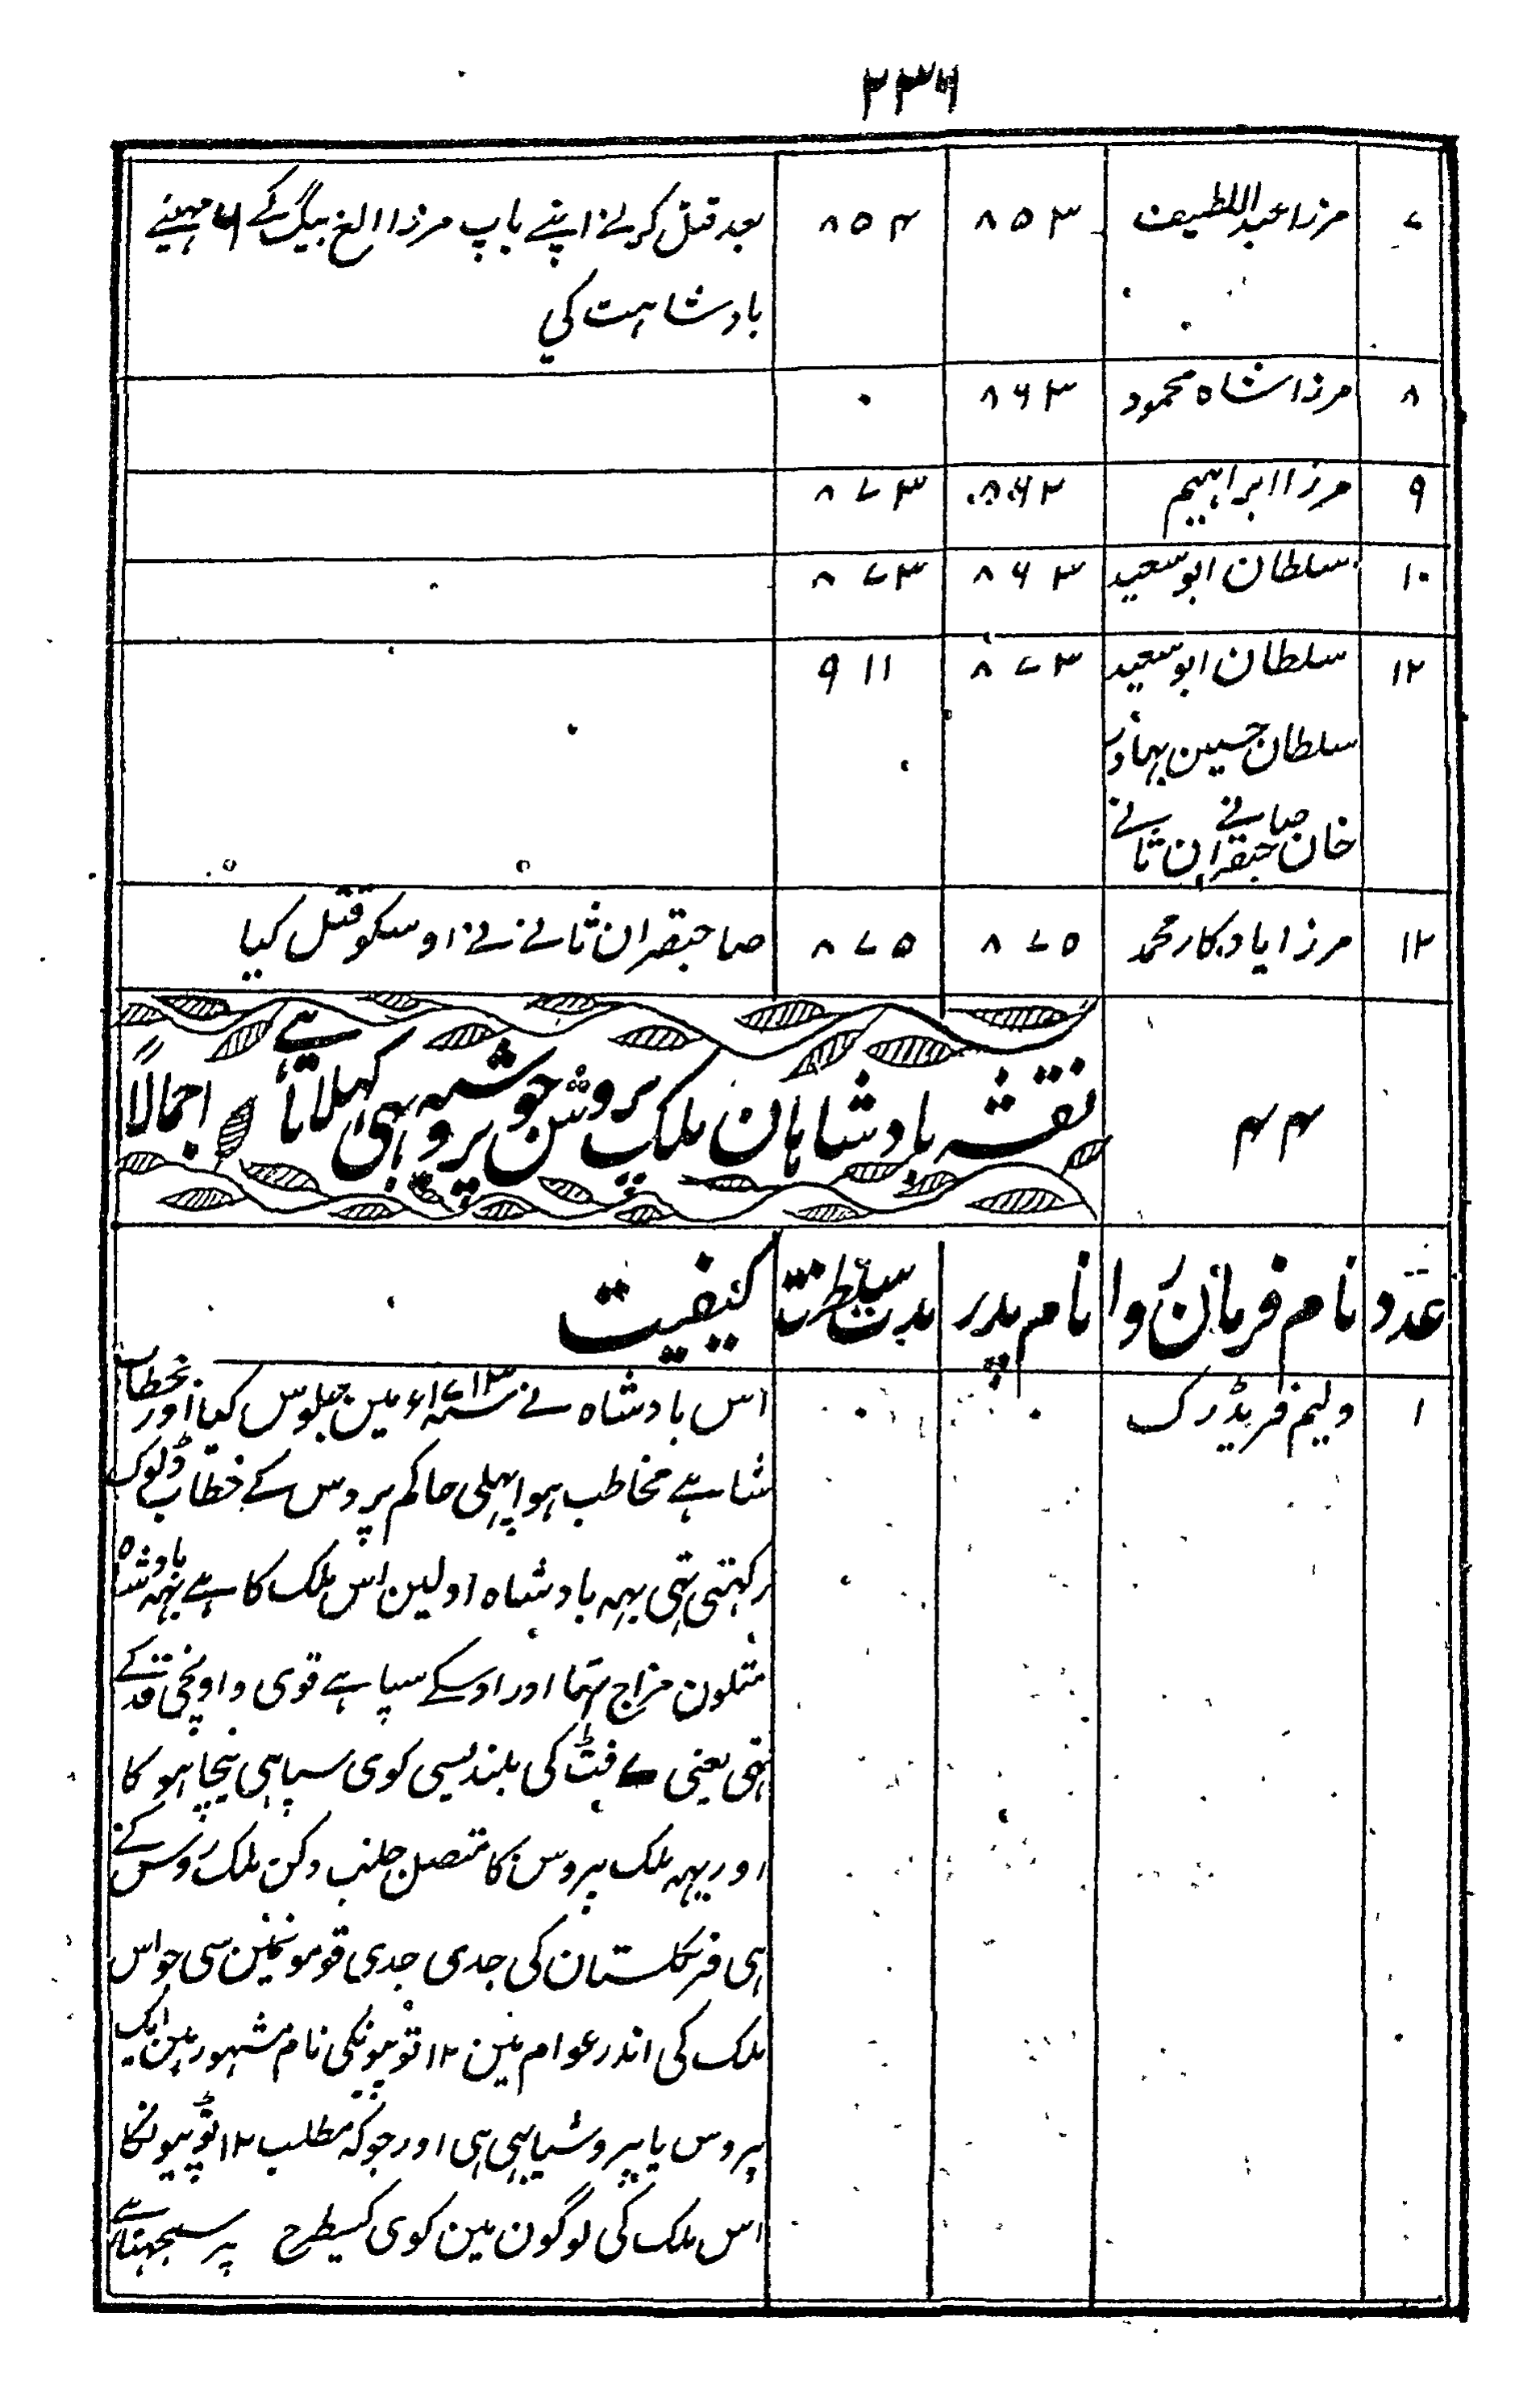 ۲۳۶
۷ مرزا عبد اللطیف ۸۵۳ ۸۵۴ بعد قتل کرنے اپنے باپ مرزا الغ بیگ کے ۶ مہینے
بادشاہت کی
۸ مرزا شاہ محمود ۸۶۳ ۰
۹ مرزا ابراہیم ۸۶۳ ۸۷۳
۱۰ سلطان ابو سعید ۸۶۳ ۸۷۳
۱۲ سلطان ابو سعید ۸۷۳ ۹۱۱
سلطان حسین بہادر
خان صاحبقرانے ثانے
۱۲ مرزا یادگار محمد ۸۷۵ ۸۷۵ صاحبقران ثانے نے اوسکو قتل کیا
۴۴ نقشہ بادشاہان ملک پروشن جو شہہ پروہی بہی کہلاتا ہے اجمالاً
عدد نام فرمان روا نام پدر مدت سلطنت کیفیت
۱ ولیم فریڈرک ۰ ۰ اس بادشاہ نے سنہ ۱۷۱۳ء مین جلوس کیا اور بخطاب
شاہے مخاطب ہوا پہلی حاکم پروس کے خطاب ڈلوک
رکہتی تہی یہہ بادشاہ اولین اس ملک کا ہے یہہ بادشاہ
متلون مزاج تہا اور اوسکے سپاہے قوی و اونچی قد کے
تہی یعنی ۷ فٹ کی بلندیسی کوی سپاہی نیچا ہوگا
اور یہہ ملک پروس کا متصل جانب دکن ملک روس کے
ہی فرنگستان کی جدی جدی قومونمین سی جو اس
ملک کی اندر عوام مین ۱۲ توپیونکی نام مشہور ہین ایک
پروس یا پروشیا بہی ہی اور جو کہ مطلب ۱۲ توپیونکا
اس ملک کی لوگون مین کوی کسیطرح پر سمجہتا ہے